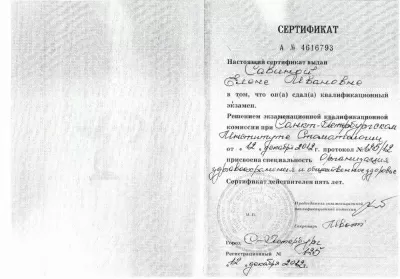 СЕРТИФИКАТ
А № 4616793
Настоящий сертификат выдан
Савиной
Елене Ивановне
в том, что он(а) сдал(а) квалификационный
экзамен.
Решением экзаменационной квалификационной
комиссии при Санкт-Петербургском
Институте Стоматологии
от «12» декабря 2012г. протокол № 125/12
присвоена специальность Организация
здравоохранения и общественное здоровье
Сертификат действителен пять лет.
Председатель экзаменационной
квалификационной комиссии
М.П.
Секретарь
Город С-Петербург
Регистрационный № 125
12 декабря 2012г.